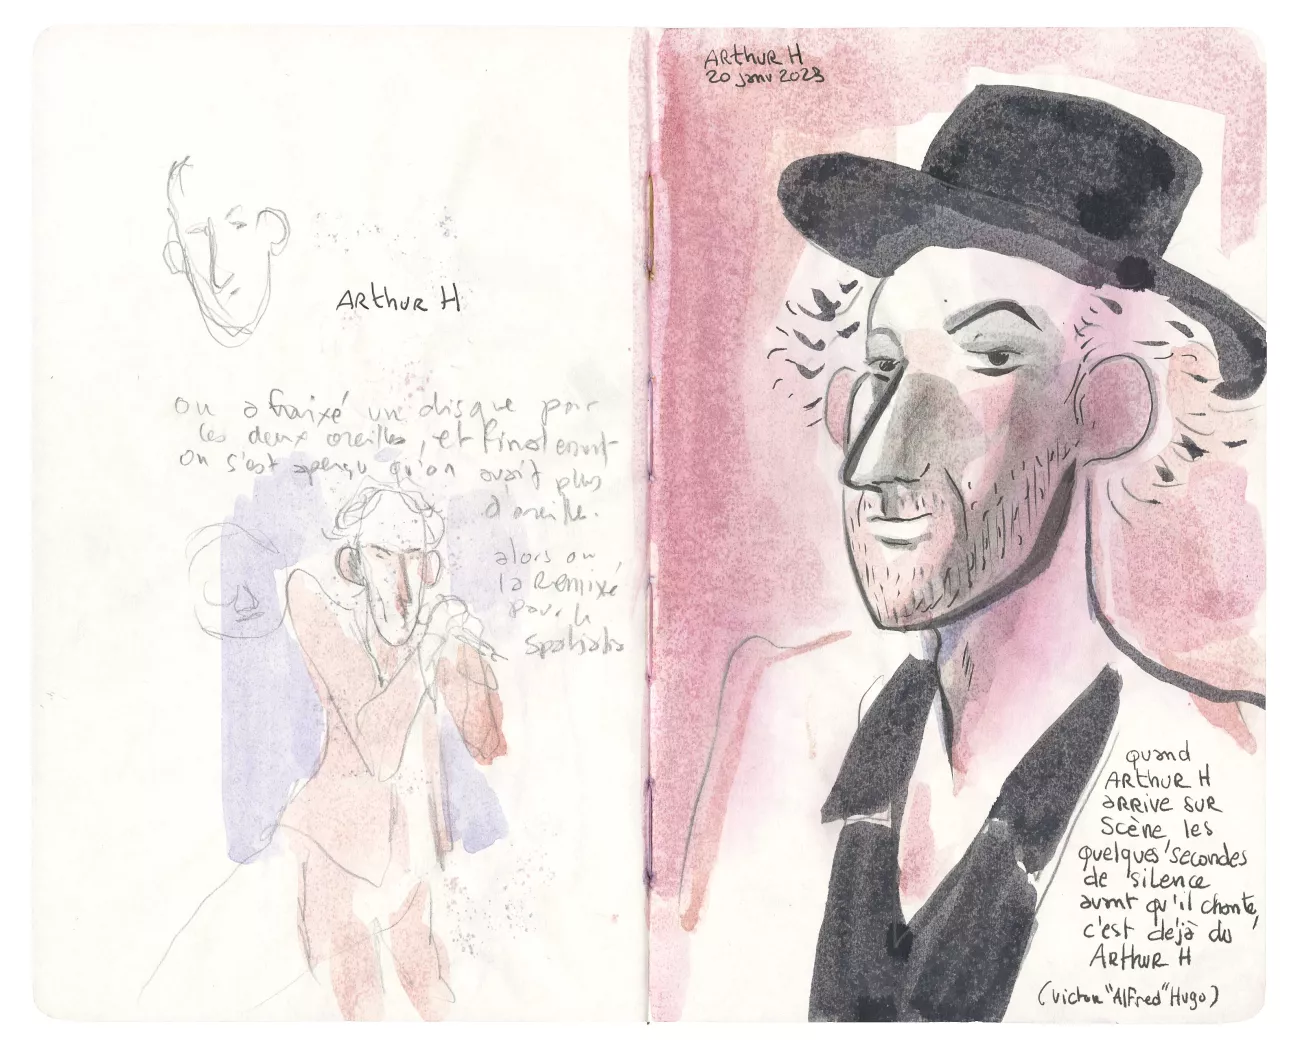 Arthur H
on a fraixé un disque pour
les deux oreilles, et finalement
on s'est aperçu qu'on avait plus
d'oreille.
alors on
la Remixé
pour le
Arthur H
20 janv 2023
quand
Arthur H
arrive sur
scène, les
quelques secondes
de silence
avant qu'il chante,
c'est déjà du
Arthur H
(Victor "Alfred" Hugo)